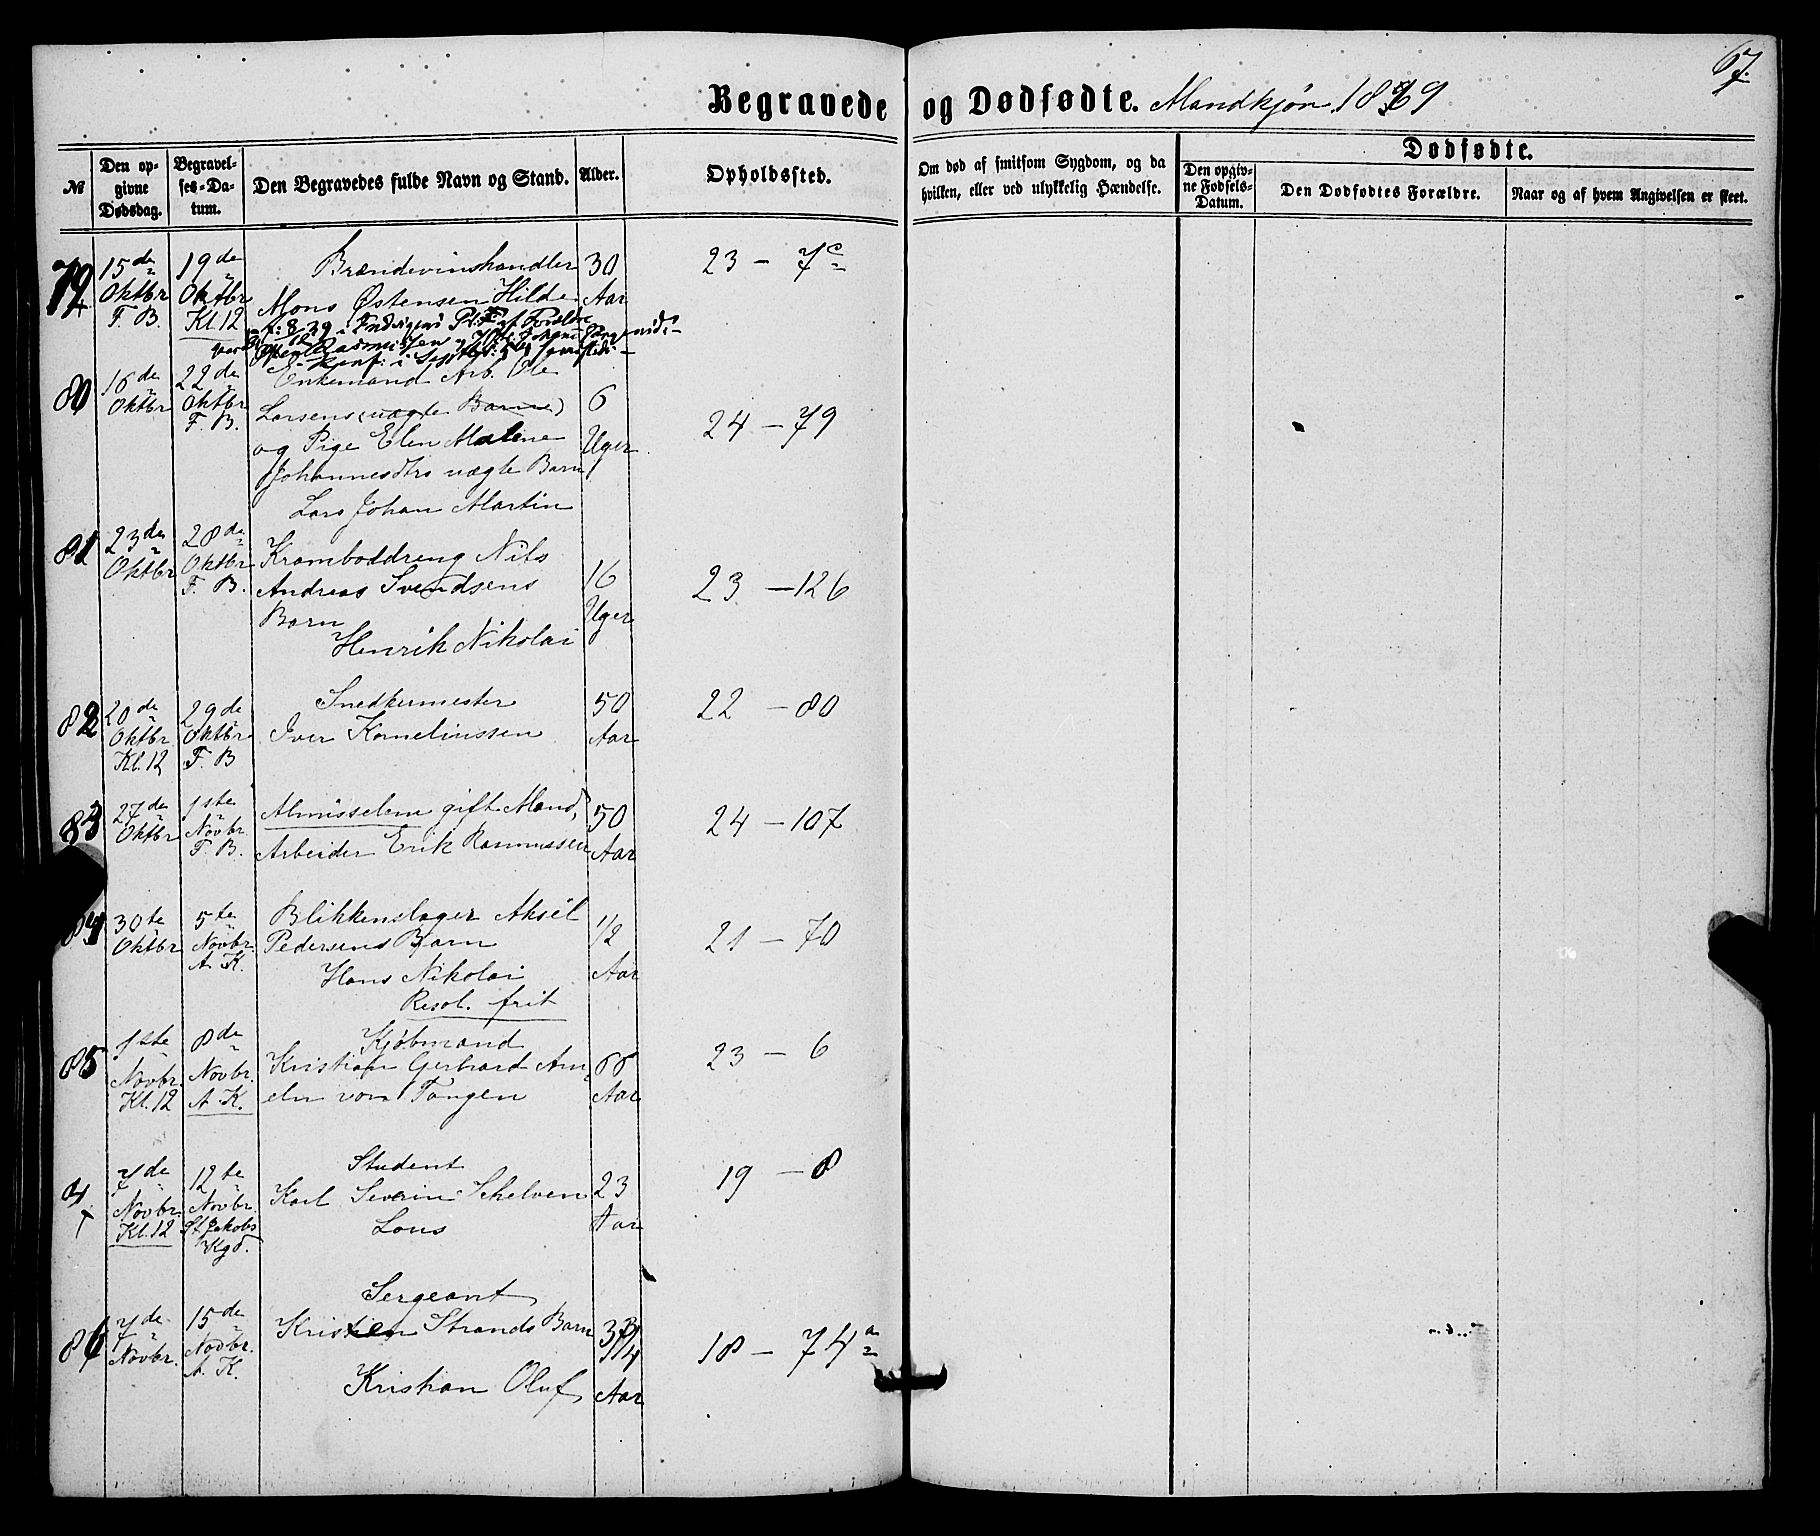 67.
Begravede og Dødfødte. Mandkjøn 1869
№
Den opgivne Dødsdag.
Begravelses-Datum.
Den Begravedes fulde Navn og Stand.
Alder.
Opholdssted.
Om død af smitsom Sygdom, og da hvilken, eller ved ulykkelig Hændelse.
Dødfødte.
Den opgivne Fødsels-Datum.
Den Dødfødtes Forældre.
Naar og af hvem Angivelsen er skeet.
79 15de Oktbr F. B. 19de Oktbr Kl. 12 Brændevinshandler 30 Aar 23 – 7c
Mons Østensen Hilde
80 16de Oktbr 22de Oktbr F. B. Enkemand Arb. Ole 6 Uger 24 – 79
Larsens (uægte Barn)
og Pige Elen Malene
Johannesdtrs uægte Barn
Lars Johan Martin
81 23de Oktbr 28de Oktbr F. B. Kramboddreng Nils 16 Uger 23 – 126
Andreas Svendsens
Barn
Henrik Nikolai
82 20de Oktbr Kl. 12 29de Oktbr F. B Snedkermester 50 Aar 22 – 80
Iver Kornelinssen
83 27de Oktbr 1ste Novbr F. B. Almisselem gift Mand, 50 Aar 24 – 107
Arbeider Erik Rasmussen
84 30te Oktbr 5te Novbr. A. K. Blikkenslager Aksel 1/2 Aar 21 – 70
Pedersens Barn
Hans Nikolai
Resol. frit
85 1ste Novbr. Kl. 12 8de Novbr. A. K. Kjøbmand 66 Aar 23 – 6
Kristian Gerhard Am=
eln von Tangen
4 7de Novbr. Kl. 12 12te Novbr. St. Jakobs Kgd. Student 23 Aar 19 – 8
Karl Severin Schelven
Lous
86 7de Novbr. 15de Novbr. A. K. Sergeant 3/4 Aar 18 – 74a
Kristien Strands Barn
Kristian Oluf